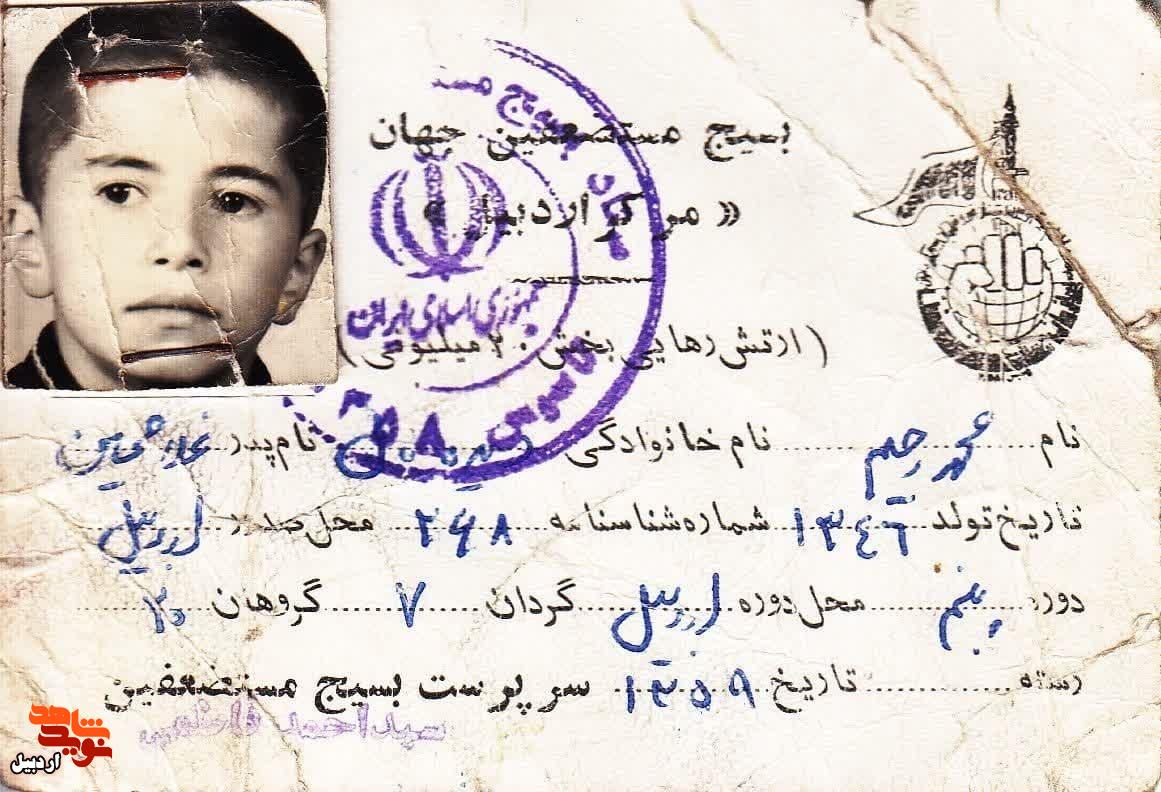 بسیج مستضعفین جهان
« مرکز اردبیل »
جمهوری اسلامی ایران
( ارتش رهایی بخش ۲۰ میلیونی )
نام محمد رحیم نام خانوادگی نام پدر غلامحسین
تاریخ تولد ۱۳۴۶ شماره شناسنامه ۲۶۸ محل صدور اردبیل
دوره پنجم محل دوره اردبیل گردان ۷ گروهان ۳۰
رسته تاریخ ۱۳۵۹ سرپرست بسیج مستضعفین
سید احمد
نوید شاهد
اردبیل